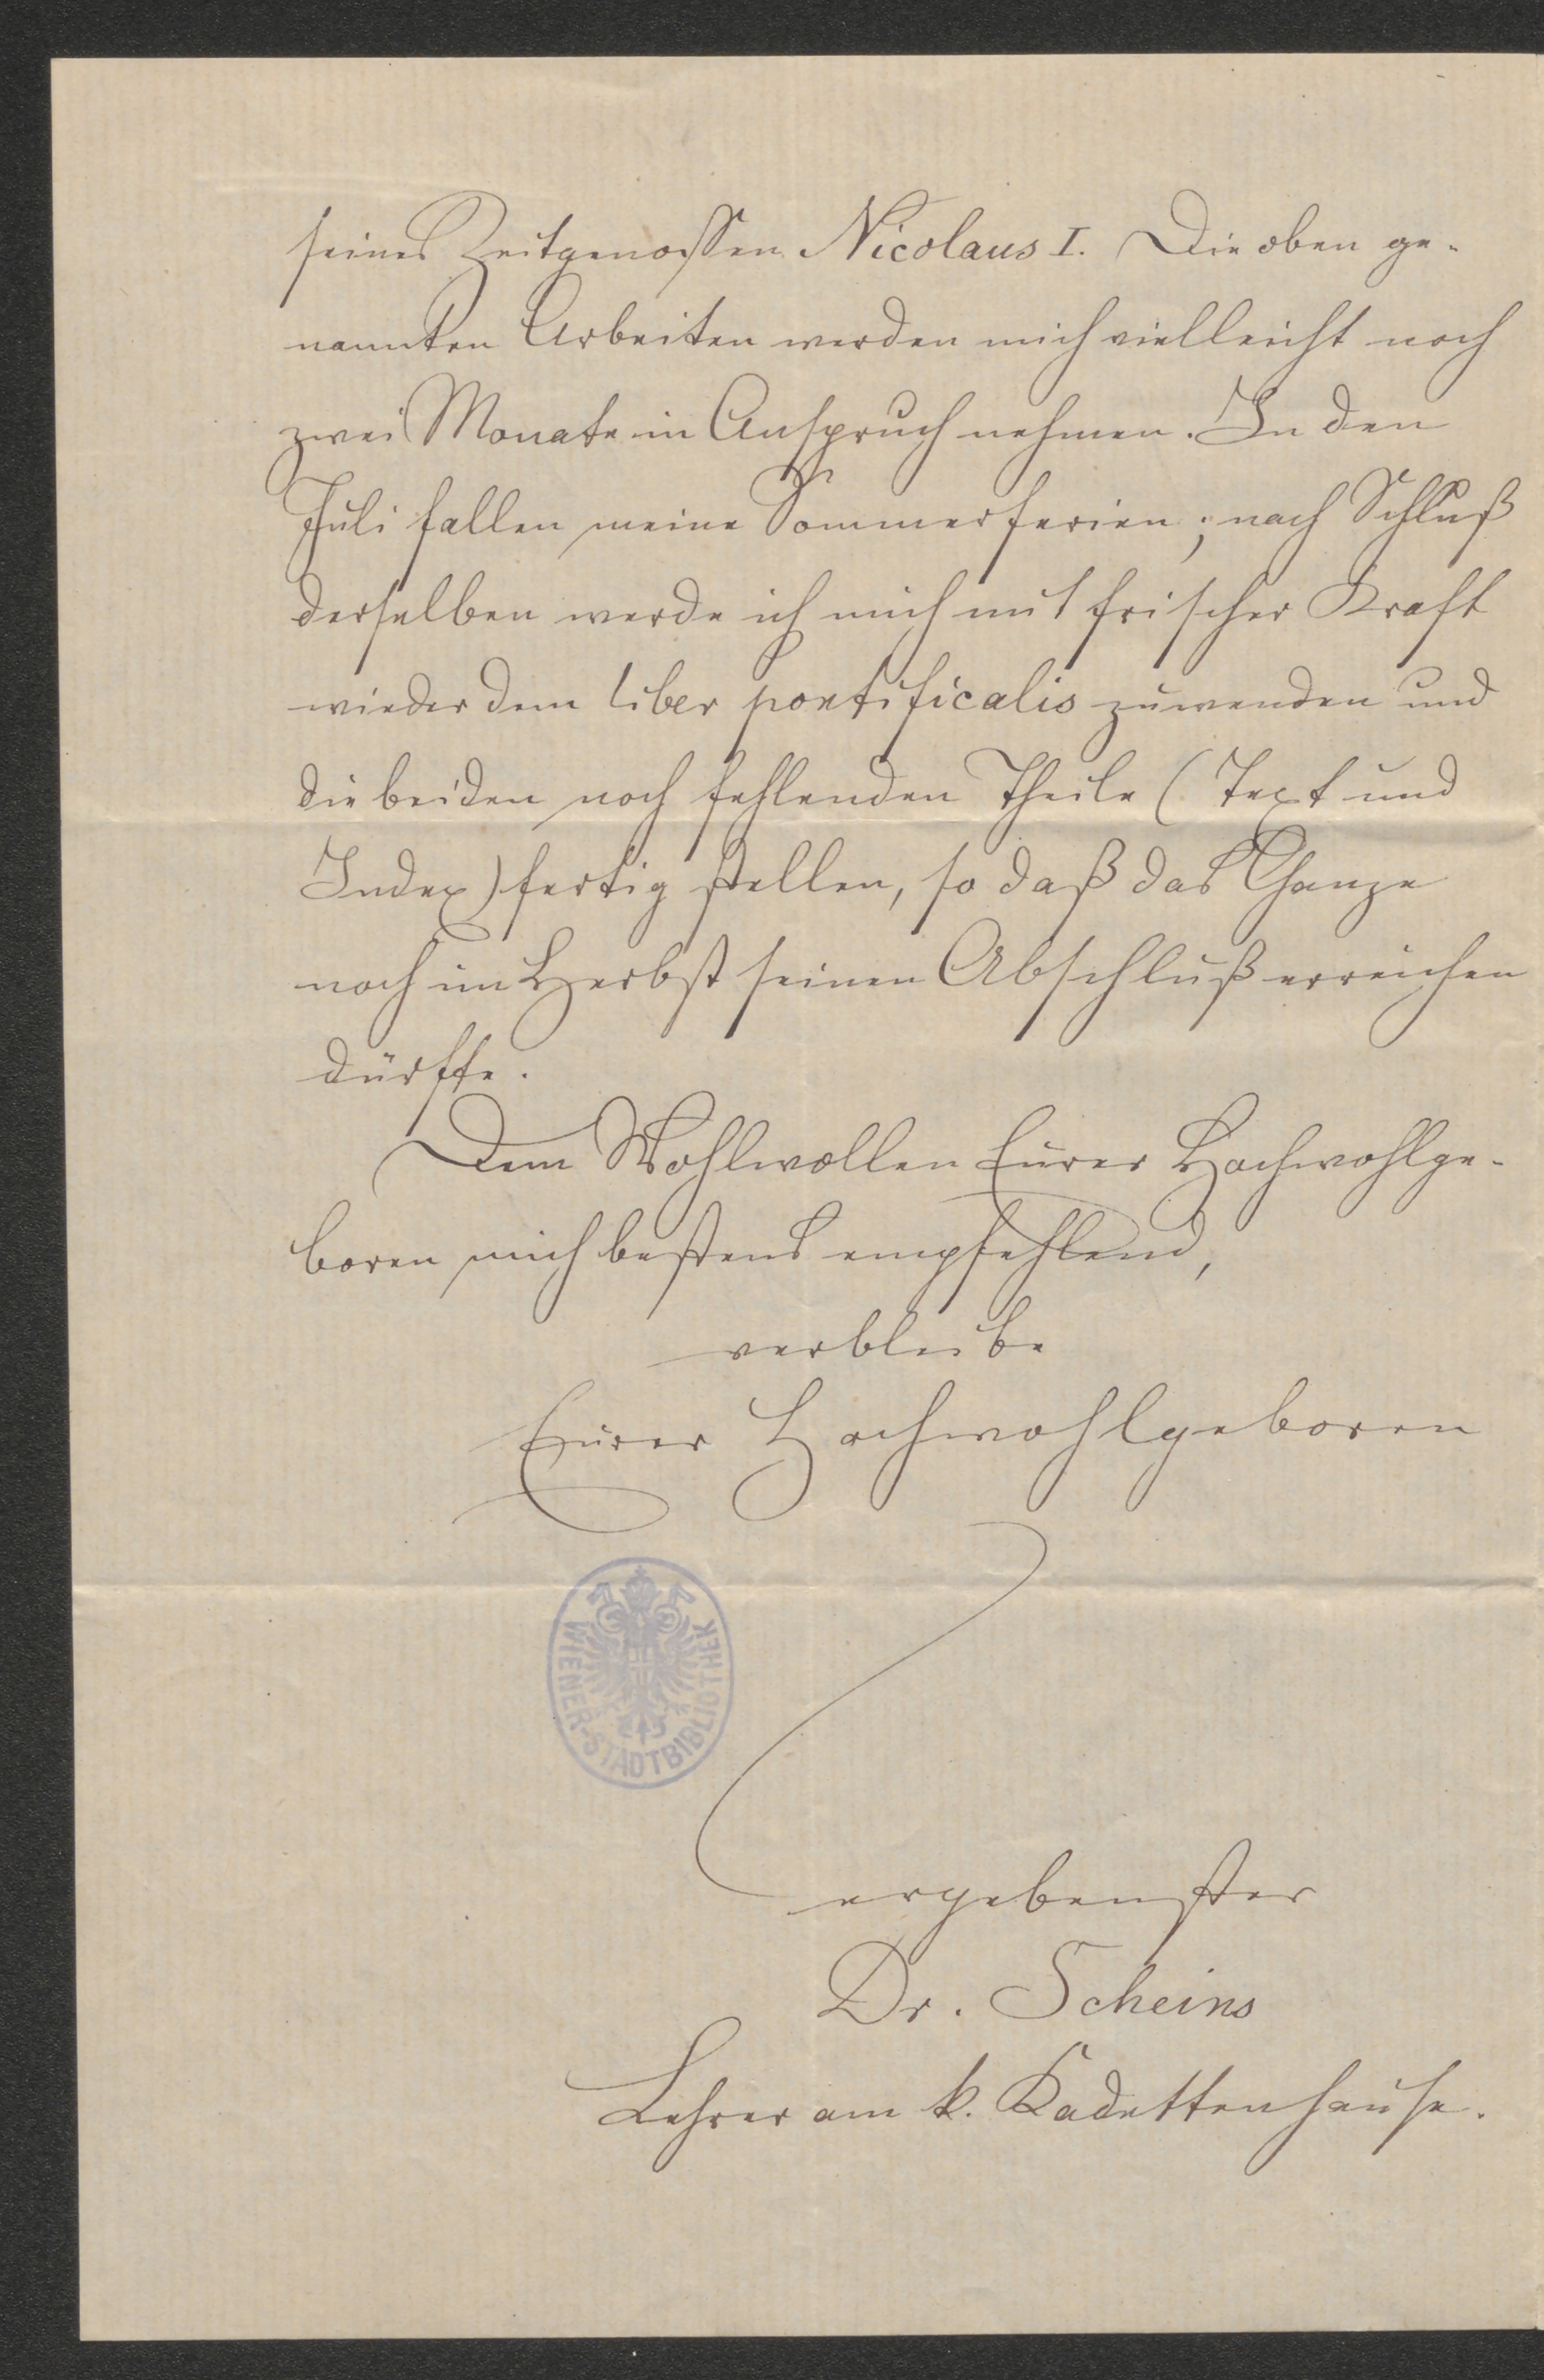 seines Zeitgenossen Nicolaus I. Die oben ge-
nannten Arbeiten werden mich vielleicht noch
zwei Monate in Anspruch nehmen. In den
Juli fallen meine Sommerferien; nach Schluß
derselben werde ich mich mit frischer Kraft
wieder dem liber pontificalis zuwenden und
die beiden noch fehlenden Theile (Text und
Index) fertig stellen, so daß das Ganze
noch im Herbst seinen Abschluß erreichen
dürfte.
Dem Wohlwollen Eurer Hochwohlge-
boren mich bestens empfehlend,
verbleibe
Eurer Hochwohlgeboren
WIENER-STADTBIBLIOTHEK
ergebenster
Dr. Scheins
Lehrer am k. Kadettenhause.